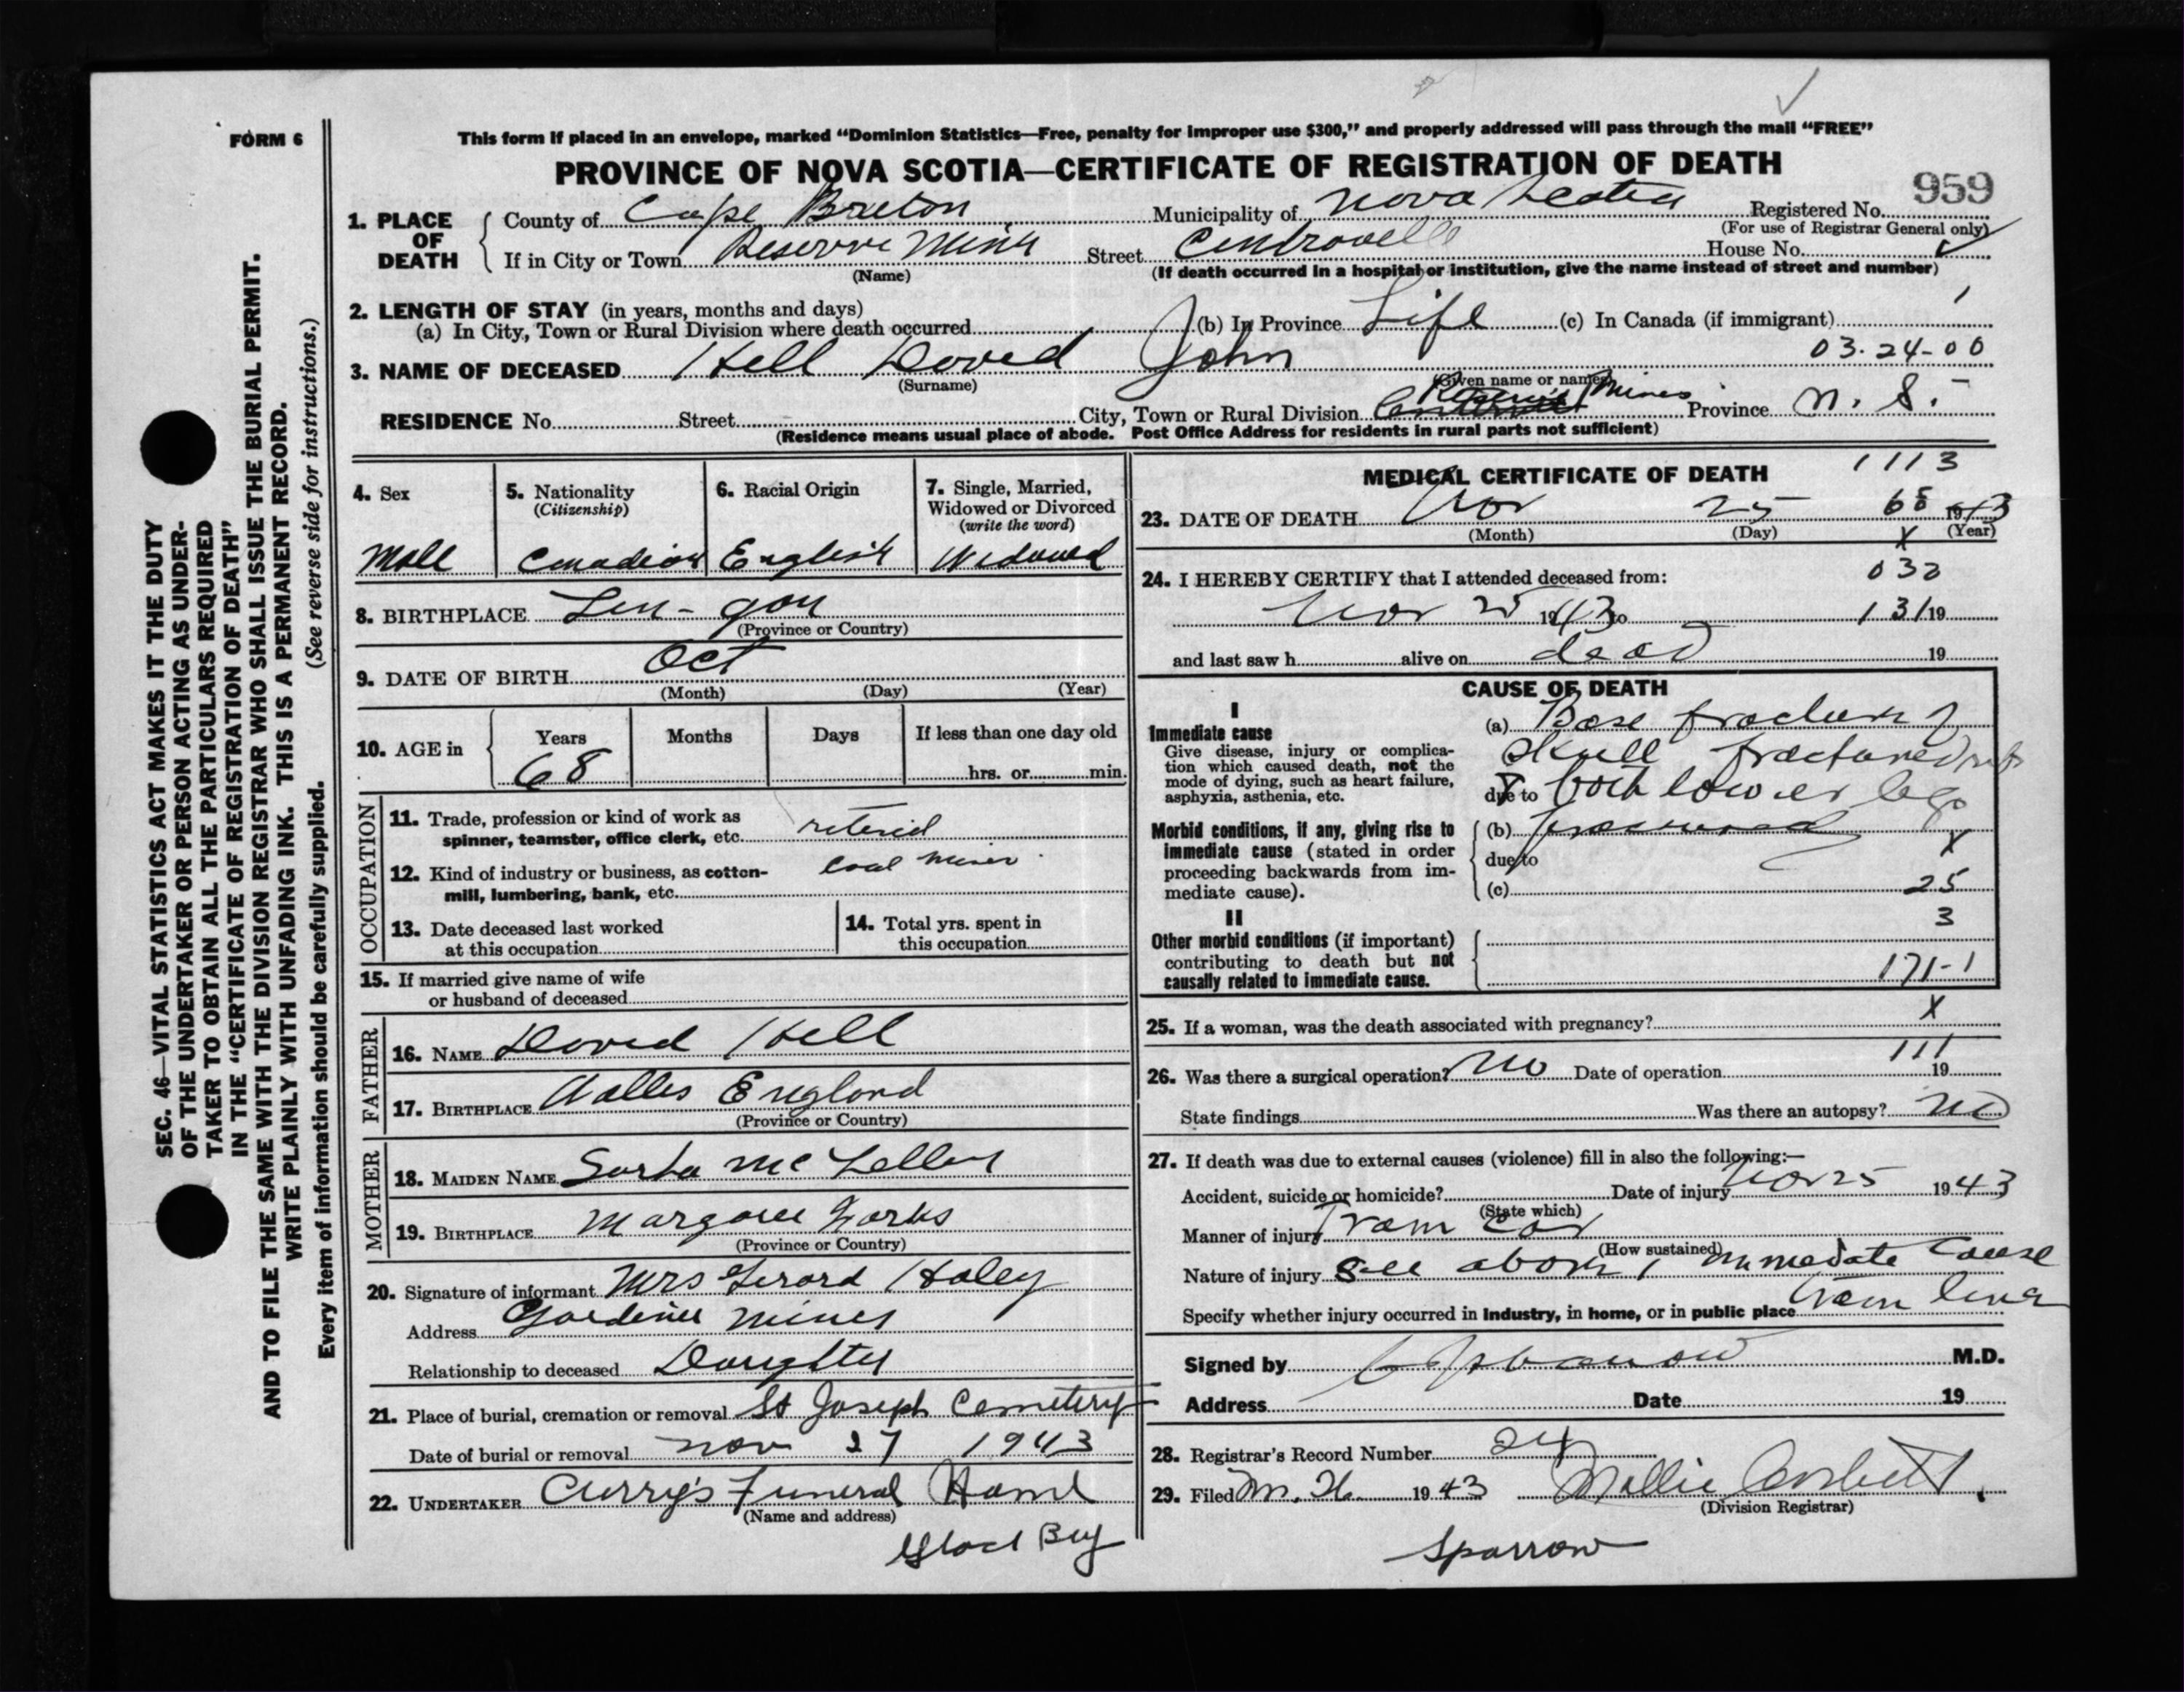 FORM 6
This form if placed in an envelope, marked “Dominion Statistics—Free, penalty for improper use $300,” and properly addressed will pass through the mail “FREE”
PROVINCE OF NOVA SCOTIA—CERTIFICATE OF REGISTRATION OF DEATH
959
1. PLACE OF DEATH County of Cape Breton Municipality of Nova Scotia Registered No.
(For use of Registrar General only)
If in City or Town Reserve Mines Street House No.
(Name) (If death occurred in a hospital or institution, give the name instead of street and number)
2. LENGTH OF STAY (in years, months and days)
(a) In City, Town or Rural Division where death occurred (b) In Province Life (c) In Canada (if immigrant)
03-24-00
3. NAME OF DECEASED Hill David John
(Surname) (Given name or names)
RESIDENCE No. Street City, Town or Rural Division Reserve Mines Province N. S.
(Residence means usual place of abode. Post Office Address for residents in rural parts not sufficient)
4. Sex 5. Nationality (Citizenship) 6. Racial Origin 7. Single, Married, Widowed or Divorced (write the word)
Male Canadian English Widowed
8. BIRTHPLACE Lin-gan
(Province or Country)
9. DATE OF BIRTH Oct
(Month) (Day) (Year)
10. AGE in Years Months Days If less than one day old
68 hrs. or min.
OCCUPATION
11. Trade, profession or kind of work as
spinner, teamster, office clerk, etc. retired
12. Kind of industry or business, as cotton-
mill, lumbering, bank, etc. coal miner
13. Date deceased last worked
at this occupation
14. Total yrs. spent in
this occupation
15. If married give name of wife
or husband of deceased
FATHER
16. NAME David Hill
17. BIRTHPLACE England
(Province or Country)
MOTHER
18. MAIDEN NAME Mc Lellan
19. BIRTHPLACE Margaree Forks
(Province or Country)
20. Signature of informant Mrs Gerard Haley
Address Gardiner Mines
Relationship to deceased Daughter
21. Place of burial, cremation or removal St Joseph Cemetery
Date of burial or removal Nov 27 1943
22. UNDERTAKER Curry's Funeral Home
(Name and address)
Glace Bay
MEDICAL CERTIFICATE OF DEATH
1113
23. DATE OF DEATH Nov 25 68 1943
(Month) (Day) (Year)
X
24. I HEREBY CERTIFY that I attended deceased from:
032
Nov 25 1943 to 131 19
and last saw h alive on dead 19
CAUSE OF DEATH
I
Immediate cause
Give disease, injury or complica-
tion which caused death, not the
mode of dying, such as heart failure,
asphyxia, asthenia, etc.
(a) Base fracture of
skull fractured
due to both lower legs
Morbid conditions, if any, giving rise to
immediate cause (stated in order
proceeding backwards from im-
mediate cause).
(b)
due to X
(c) 25
3
II
Other morbid conditions (if important)
contributing to death but not
causally related to immediate cause.
171-1
25. If a woman, was the death associated with pregnancy? X
111
26. Was there a surgical operation? No Date of operation 19
State findings Was there an autopsy? No
27. If death was due to external causes (violence) fill in also the following:—
Accident, suicide or homicide? Date of injury Nov 25 1943
(State which)
Manner of injury Tram car
(How sustained)
Nature of injury See above, immediate cause
Specify whether injury occurred in industry, in home, or in public place Tram line
Signed by M.D.
Address Date 19
28. Registrar's Record Number 24
29. Filed 26 1943 Mollie Corbett
(Division Registrar)
Sparrow
SEC. 46—VITAL STATISTICS ACT MAKES IT THE DUTY
OF THE UNDERTAKER OR PERSON ACTING AS UNDER-
TAKER TO OBTAIN ALL THE PARTICULARS REQUIRED
IN THE “CERTIFICATE OF REGISTRATION OF DEATH”
AND TO FILE THE SAME WITH THE DIVISION REGISTRAR WHO SHALL ISSUE THE BURIAL PERMIT.
WRITE PLAINLY WITH UNFADING INK. THIS IS A PERMANENT RECORD.
Every item of information should be carefully supplied. (See reverse side for instructions.)